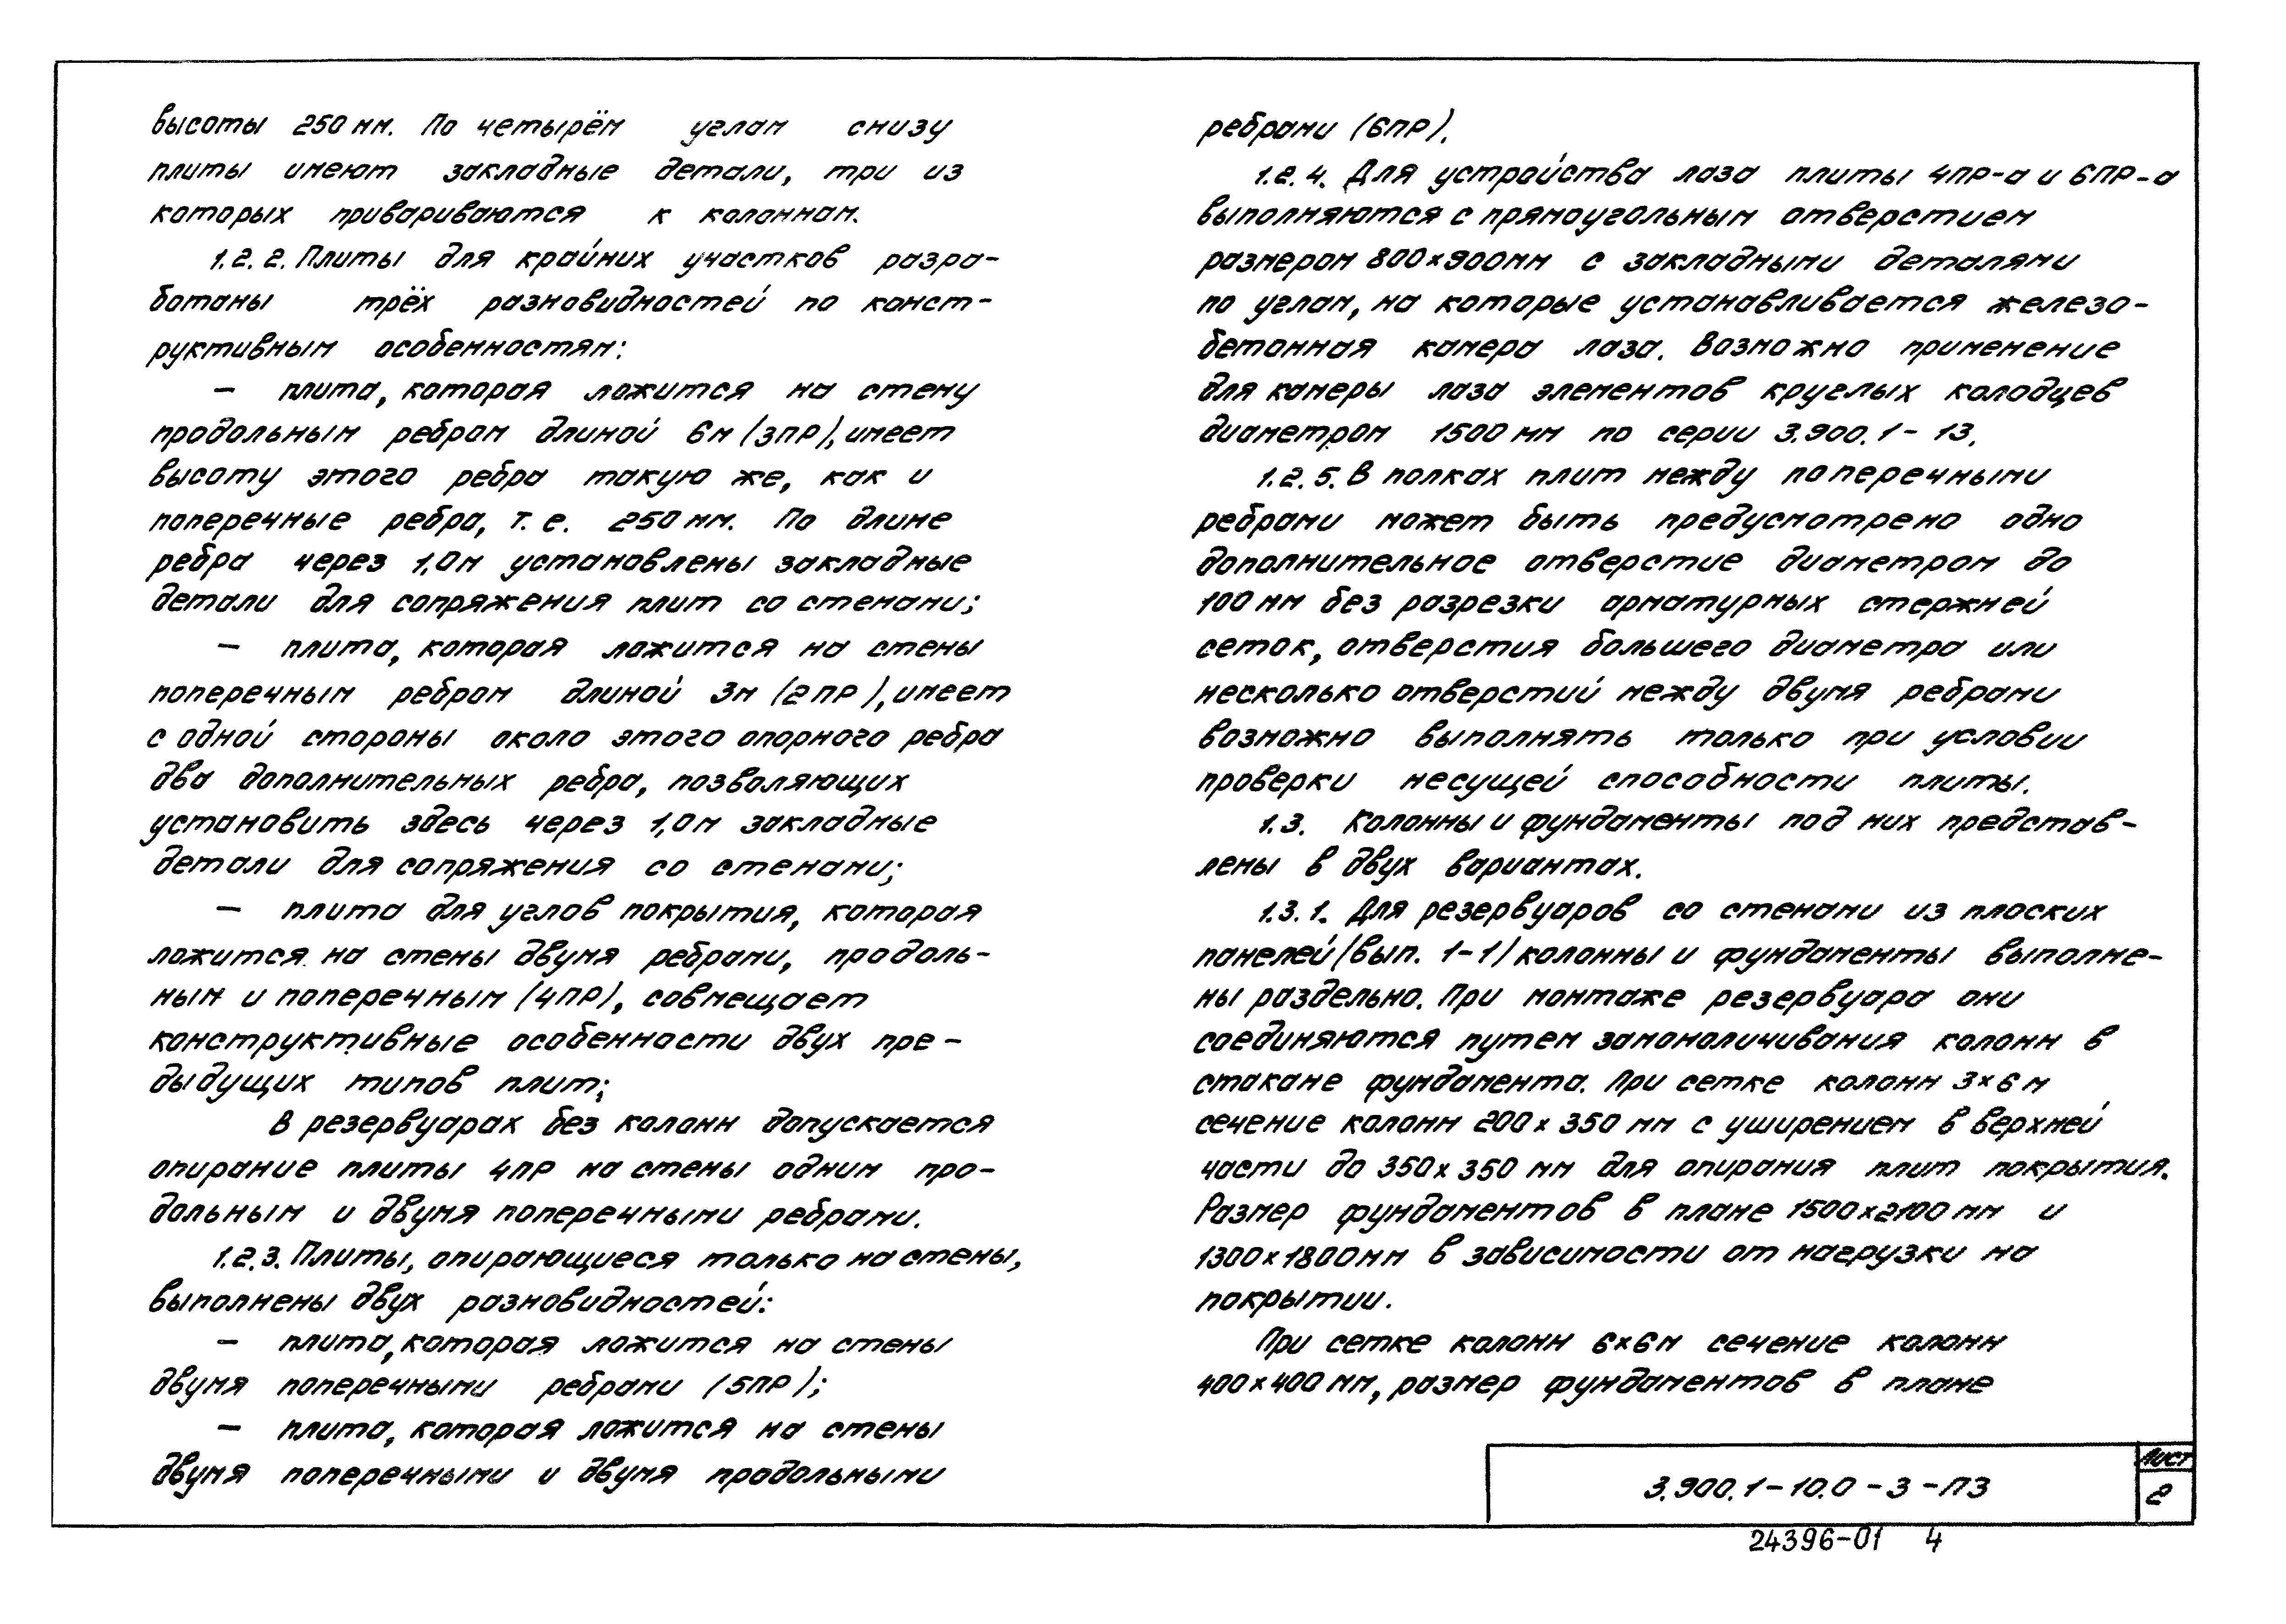 высоты 250 мм. По четырём углам снизу
плиты имеют закладные детали, три из
которых привариваются к колоннам.
1.2.2. Плиты для крайних участков разра-
ботаны трёх разновидностей по конст-
руктивным особенностям:
— плита, которая ложится на стену
продольным ребром длиной 6м (3ПР), имеет
высоту этого ребра такую же, как и
поперечные ребра, т. е. 250 мм. По длине
ребра через 1,0м установлены закладные
детали для сопряжения плит со стенами;
— плита, которая ложится на стены
поперечным ребром длиной 3м (2ПР), имеет
с одной стороны около этого опорного ребра
два дополнительных ребра, позволяющих
установить здесь через 1,0м закладные
детали для сопряжения со стенами;
— плита для углов покрытия, которая
ложится на стены двумя ребрами, продоль-
ным и поперечным (4ПР), совмещает
конструктивные особенности двух пре-
дыдущих типов плит;
В резервуарах без колонн допускается
опирание плиты 4ПР на стены одним про-
дольным и двумя поперечными ребрами.
1.2.3. Плиты, опирающиеся только на стены,
выполнены двух разновидностей:
— плита, которая ложится на стены
двумя поперечными ребрами (5ПР);
— плита, которая ложится на стены
двумя поперечными и двумя продольными
ребрами (6ПР).
1.2.4. Для устройства лаза плиты 4ПР-а и 6ПР-а
выполняются с прямоугольным отверстием
размером 800×900мм с закладными деталями
по углам, на которые устанавливается железо-
бетонная камера лаза. Возможно применение
для камеры лаза элементов круглых колодцев
диаметром 1500 мм по серии 3.900.1-13.
1.2.5. В полках плит между поперечными
ребрами может быть предусмотрено одно
дополнительное отверстие диаметром до
100 мм без разрезки арматурных стержней
сеток, отверстия большего диаметра или
несколько отверстий между двумя ребрами
возможно выполнять только при условии
проверки несущей способности плиты.
1.3. Колонны и фундаменты под них представ-
лены в двух вариантах.
1.3.1. Для резервуаров со стенами из плоских
панелей (вып. 1-1) колонны и фундаменты выполне-
ны раздельно. При монтаже резервуара они
соединяются путем замоноличивания колонн в
стакане фундамента. При сетке колонн 3×6 м
сечение колонн 200×350 мм с уширением в верхней
части до 350×350 мм для опирания плит покрытия.
Размер фундаментов в плане 1500×2100 мм и
1300×1800мм в зависимости от нагрузки на
покрытии.
При сетке колонн 6×6м сечение колонн
400×400 мм, размер фундаментов в плане
3.900.1-10.0-3-ПЗ
Лист
2
24396-01 4